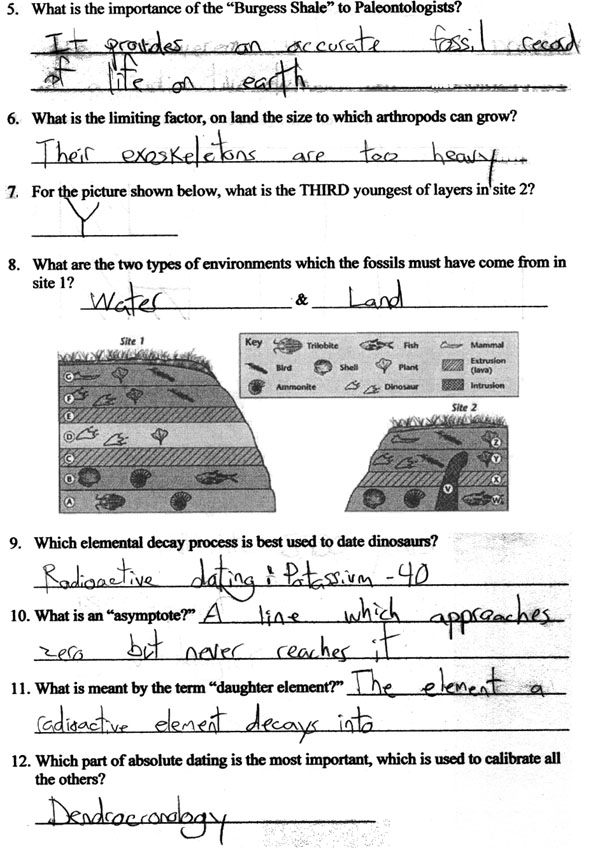 5. What is the importance of the “Burgess Shale” to Paleontologists?
It provides an accurate fossil record
of life on earth
6. What is the limiting factor, on land the size to which arthropods can grow?
Their exoskeletons are too heavy
7. For the picture shown below, what is the THIRD youngest of layers in site 2?
Y
8. What are the two types of environments which the fossils must have come from in
site 1?
Water & Land
Site 1
Key Trilobite Fish Mammal
Bird Shell Plant Extrusion (lava)
Ammonite Dinosaur Intrusion
Site 2
G
F
E
D
C
B
A
Z
Y
X
V
W
9. Which elemental decay process is best used to date dinosaurs?
Radioactive dating : Potassium -40
10. What is an “asymptote?” A line which appraaches
zero but never reaches it
11. What is meant by the term “daughter element?” The element a
radioactive element decays into
12. Which part of absolute dating is the most important, which is used to calibrate all
the others?
Dendrocronology